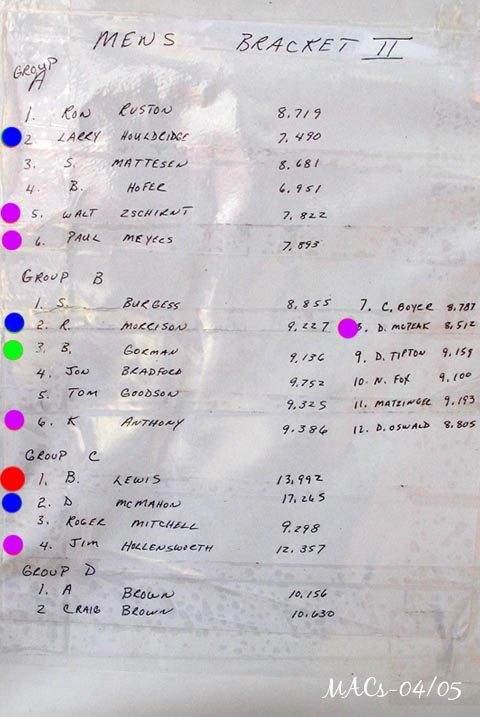 MENS BRACKET II
GROUP A
1. RON RUSTON 8.719
2 LARRY HOULDRIDGE 7.490
3. S. MATTESEN 8.681
4. B. HOFER 6.951
5. WALT ZSCHIRNT 7.822
6. PAUL MEYERS 7.893
GROUP B
1. S BURGESS 8.855
2. R. MORRISON 9.227
3. B. GORMAN 9.136
4. JON BRADFORD 9.752
5. TOM GOODSON 9.325
6. K ANTHONY 9.386
7. C. BOYER 8.787
8. D. MCPEAK 8.512
9. D. TIPTON 9.159
10. N. FOX 9.100
11. MATZINGER 9.193
12. D. OSWALD 8.805
GROUP C
1. B. LEWIS 13.992
2. D MCMAHON 17.265
3. ROGER MITCHELL 9.298
4. JIM HOLLENSWORTH 12.357
GROUP D
1. A BROWN 10.156
2 CRAIG BROWN 10.630
MACs-04/05